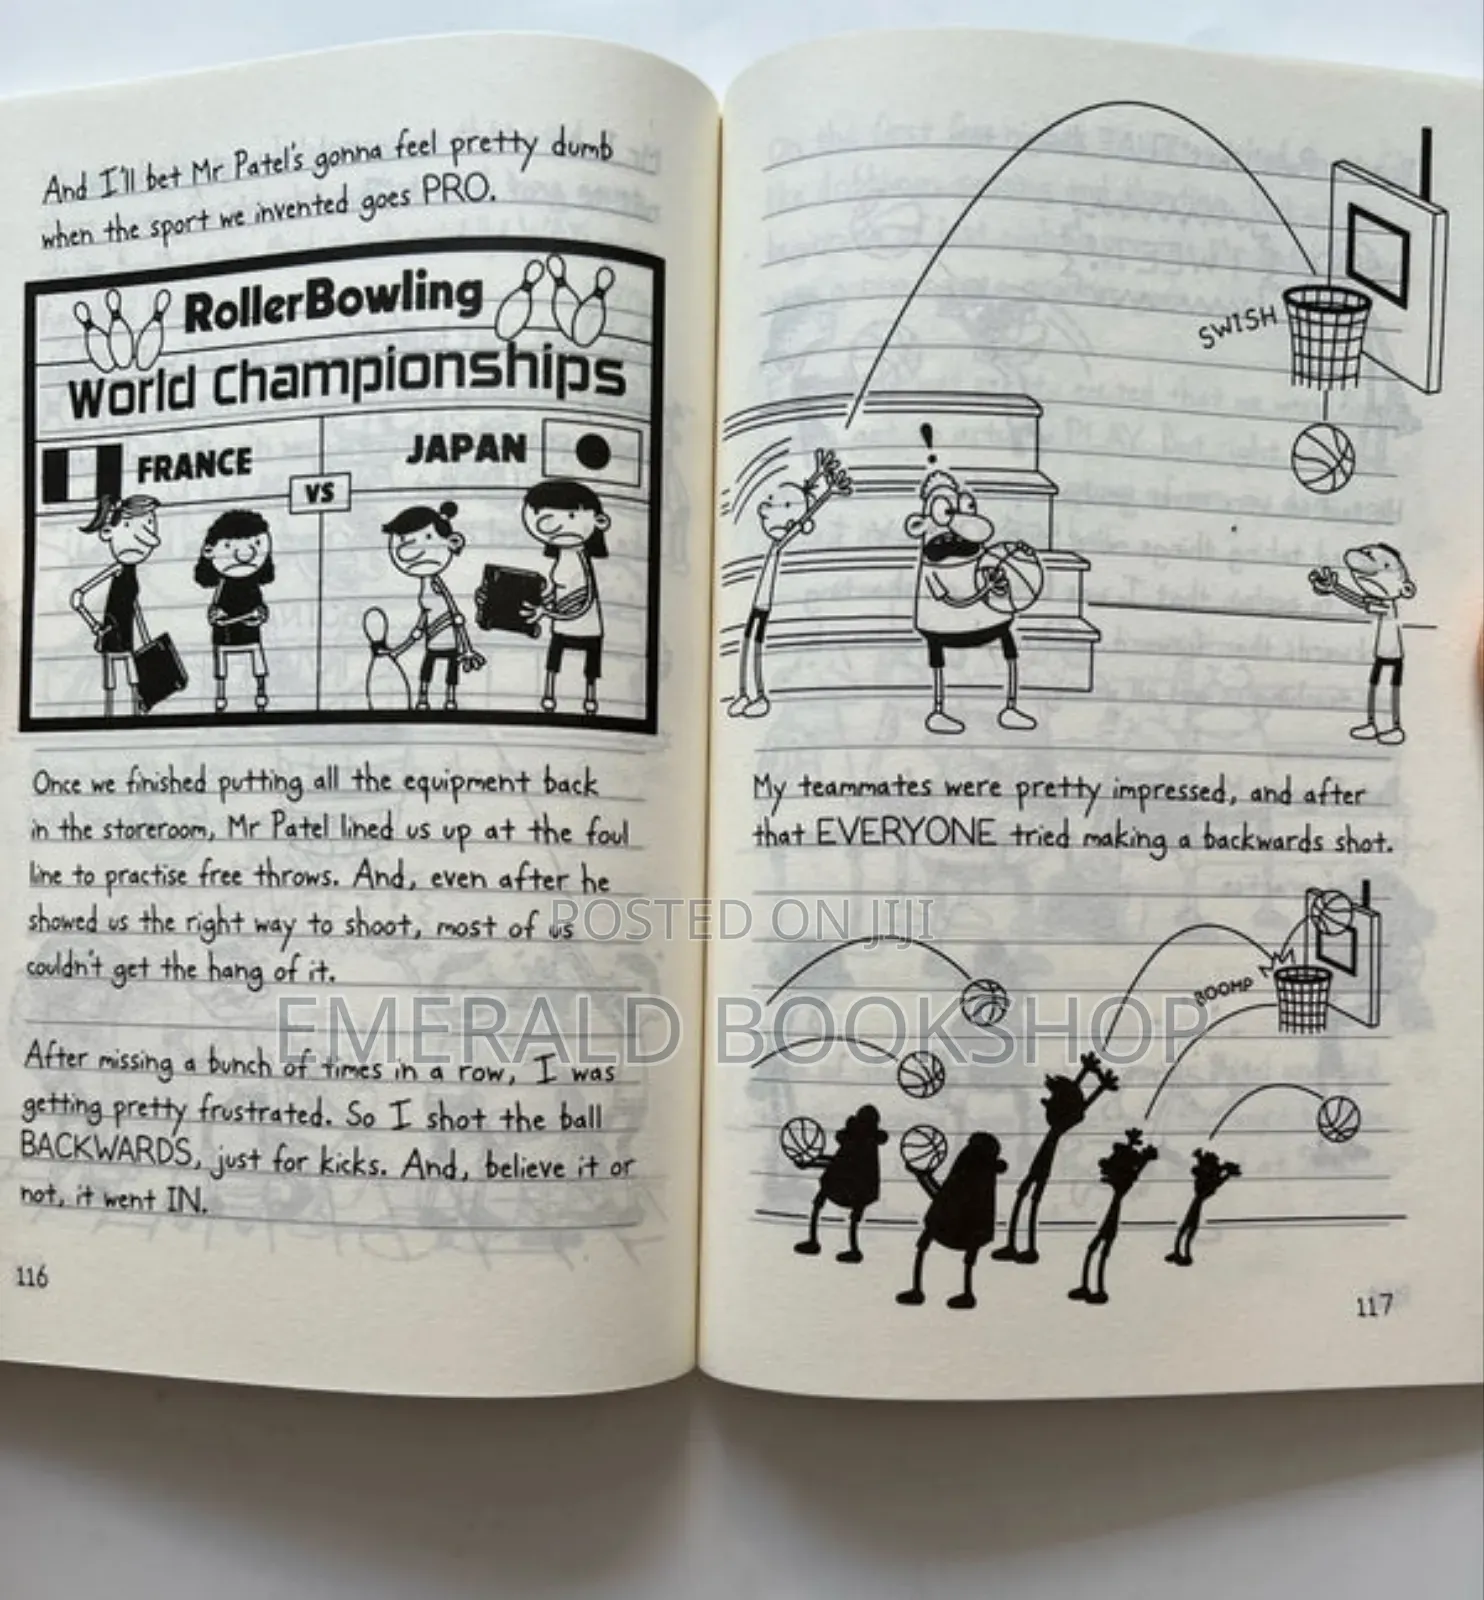 And I'll bet Mr Patel's gonna feel pretty dumb
when the sport we invented goes PRO.
RollerBowling
World Championships
FRANCE
VS
JAPAN
Once we finished putting all the equipment back
in the storeroom, Mr Patel lined us up at the foul
line to practise free throws. And, even after he
showed us the right way to shoot, most of us
couldn't get the hang of it.
After missing a bunch of times in a row, I was
getting pretty frustrated. So I shot the ball
BACKWARDS, just for kicks. And, believe it or
not, it went IN.
116
SWISH
!
My teammates were pretty impressed, and after
that EVERYONE tried making a backwards shot.
BOOMP
117
POSTED ON JIJI
EMERALD BOOKSHOP